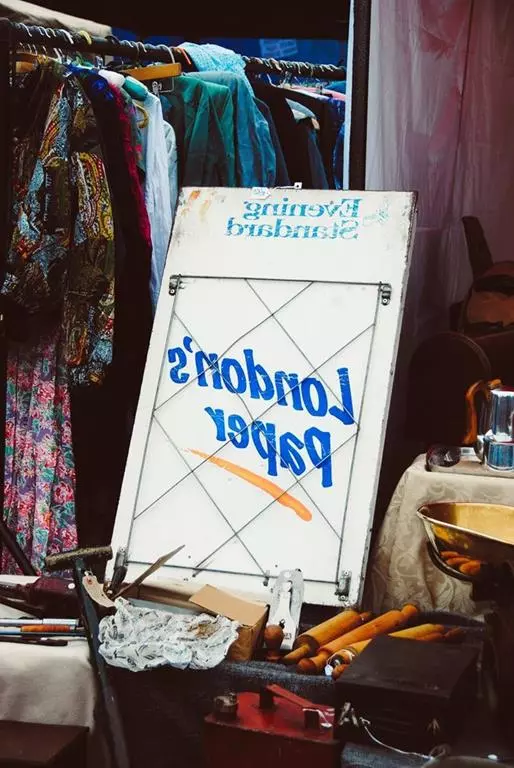 Evening
Standard
London's
paper